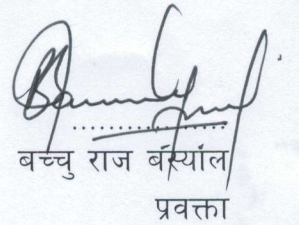 ....................
बच्चु राज बंस्याल
प्रवक्ता